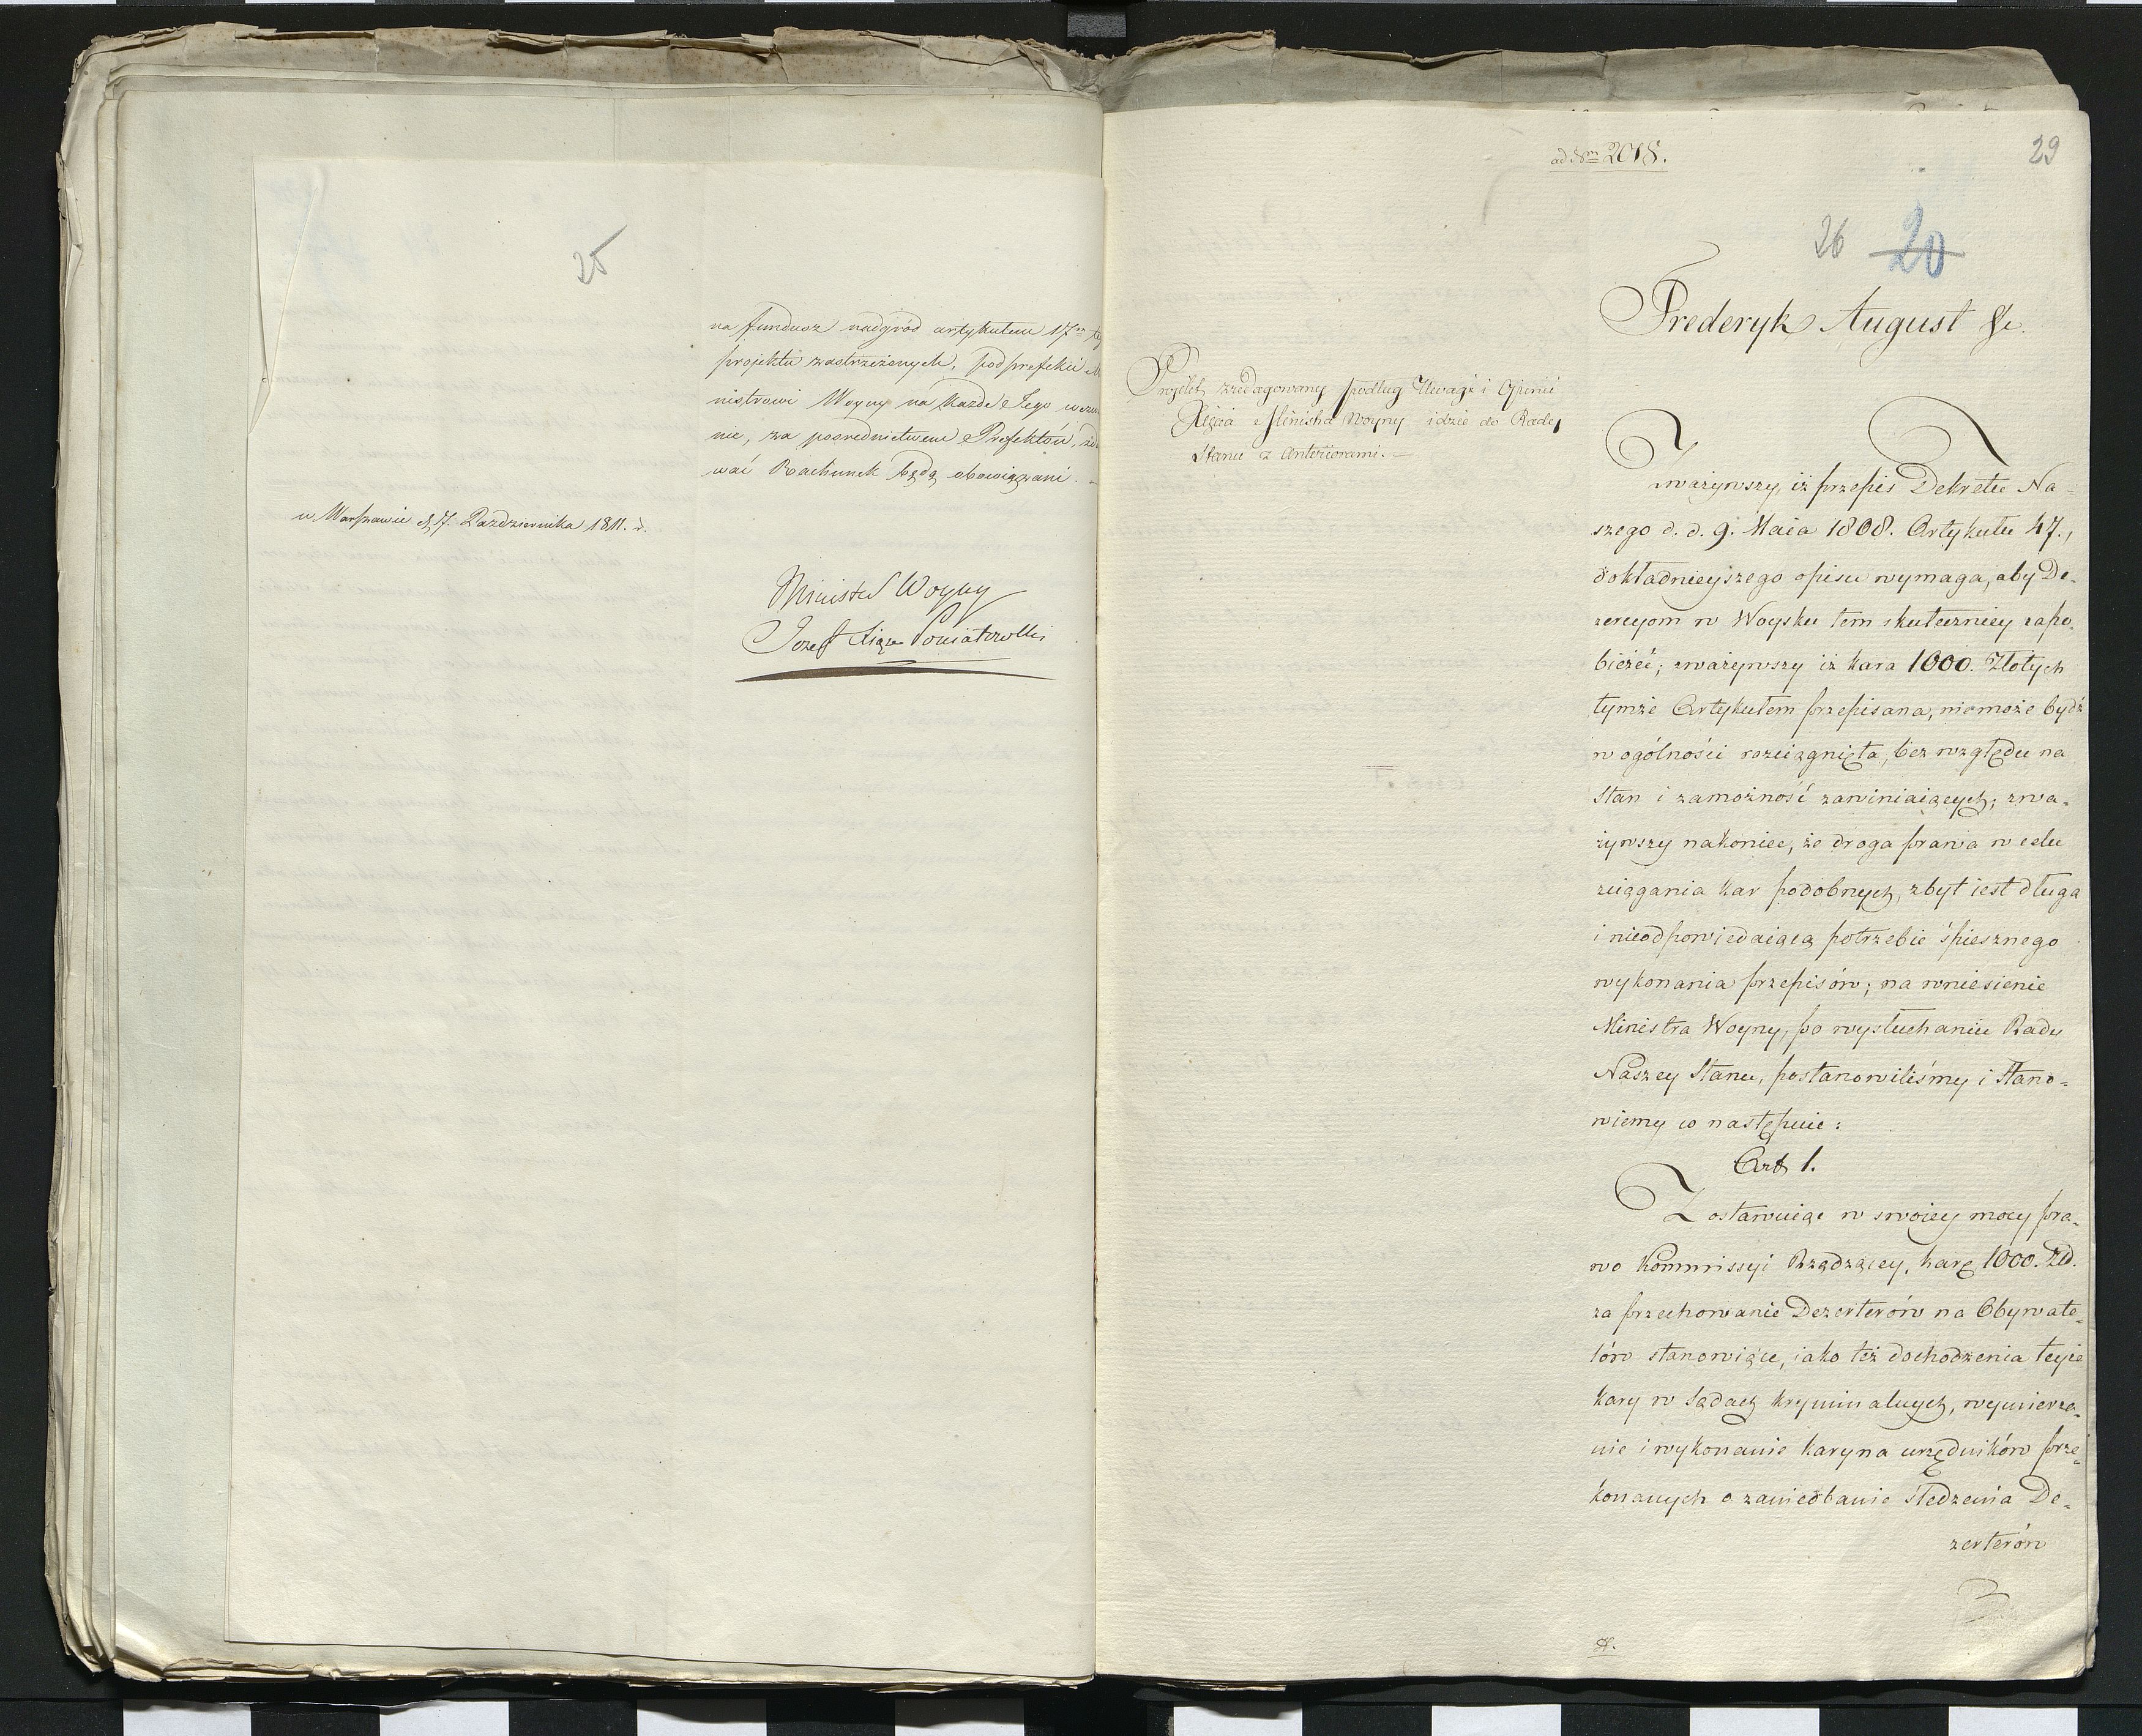 25
na fundusz nadgród artykułem 17m
projektu zastrzeżonych, podprefekci
nistrowi Woyny na każde Jego
nie, za pośrednictwem Prefektów,
wać Rachunek będą obowiązani. —
w Warszawie d. 7. Października 1811. r.
Minister Woyny
Jozef Xiąże Poniatowski
ad Nm 2018.
29
26 20
Frederyk August &c.
Projekt zredagowany podług Uwagi i Opinii
Xięcia Ministra Woyny idzie do Rady
Stanu z anteriorami. —
Zważywszy, iż przepis Dekretu Na=
szego d. d. 9. Maia 1808. Artykułu 47.,
dokładnieyszego opisu wymaga, aby De=
zercyom w Woysku tem skuteczniey zapo=
bieżeć; zważywszy iż kara 1000. Złotych
tymże Artykułem przepisana, niemoże bydź
w ogólności rozciągnięta, bez względu na
Stan i zamożność zawiniaiących; zwa=
żywszy nakoniec, że droga prawa w celu
zciągania kar podobnych, zbyt iest długa
i nieodpowiedaiącą potrzebie śpiesznego
wykonania przepisów; na wniesienie
Ministra Woyny, po wysłuchaniu Rady
Naszey Stanu, postanowiliśmy i Stano=
wiemy co następuie:
Art 1.
Zostawuiąc w swoiey mocy pra=
wo Kommissyi Rządzącey, karę 1000. Złł.
za przechowanie Dezerterów na Obywate=
lów stanowiące, iako też dochodzenia teyże
kary w Sądach kryminalnych, wymierza=
nie i wykonanie kary na urzędników prze=
konanych o zaniedbanie śledzenia De=
zerterów